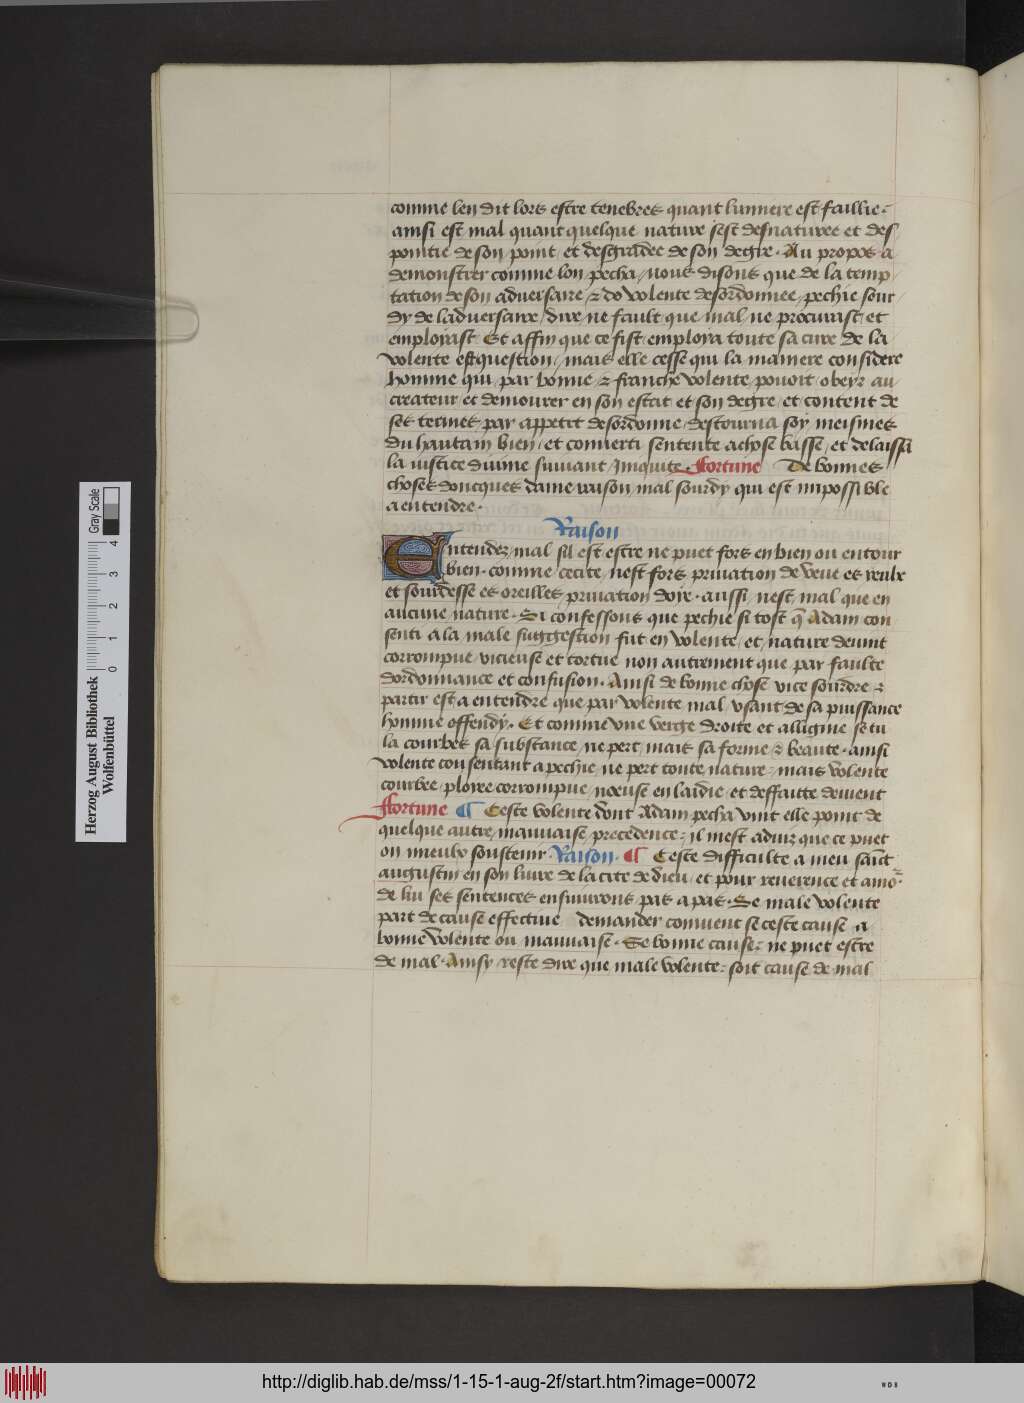 comme len dit lors estre tenebres quant lumiere est faillie
ainsi est mal quant quelque nature sest desnaturee et des
pointie de son point et desgradee de son degre. Au propos a
demonstrer comme lon pecha nous disons que de la temp
tation de son adversaire et do volente desordonnee pechie sour
dy de ladversaire dire ne fault que mal ne procurast et
employast. Et affin que ce fist employa toute sa cure de la
volente est question mais elle cesse qui la maniere considere
homme qui par bonne et franche volente povoit obeyr au
createur et demourer en son estat et son degre et content de
ses termes par appetit desordonne destourna soy meismes
du haultain bien et converti sentente a chose basse et delaissa
la iustice divine suivant Iniquite. Fortune De bonnes
choses doncques dame raison mal sourdy qui est impossible
a entendre.
Raison
Entendez mal sil est estre ne puet fors en bien ou entour
bien. comme cecite nest fors privation de veue es yeulx
et sourdesse es oreilles privation doye. aussi nest mal que en
aucune nature. Si confessons que pechie si tost q̃ Adam con
senti a la male suggestion fut en volente et nature devint
corrompue vicieuse et tortue non autrement que par faulte
dordonnance et confusion. Ainsi de bonne chose vice sourdre et
partir est a entendre que par volente mal usant de sa puissance
homme offendy. Et comme une verge droite et allignie se tu
la courbes sa substance ne pert mais sa forme et beaute. ainsi
volente consentant a pechie ne pert toute nature mais volente
courbee ployee corrompue noeuse enlaidie et deffaitte devient
Fortune ¶ Ceste volente dont Adam pecha vint elle point de
quelque autre mauvaise precedence il mest adviz que ce puet
on soustenir. Raison. ¶ Ceste difficulte a meu saĩct
augustin en son livre de la cite de dieu et pour reverence et amo
de lui ses sentences ensuivrons pas a pas. Se male volente
part de cause effective demander convient se ceste cause a
bonne volente ou mauvaise. Se bonne cause ne puet estre
de mal. Ainsy reste dire que male volente soit cause de mal
Herzog August Bibliothek
Wolfenbüttel
0 1 2 3 4
Gray Scale
http://diglib.hab.de/mss/1-15-1-aug-2f/start.htm?image=00072